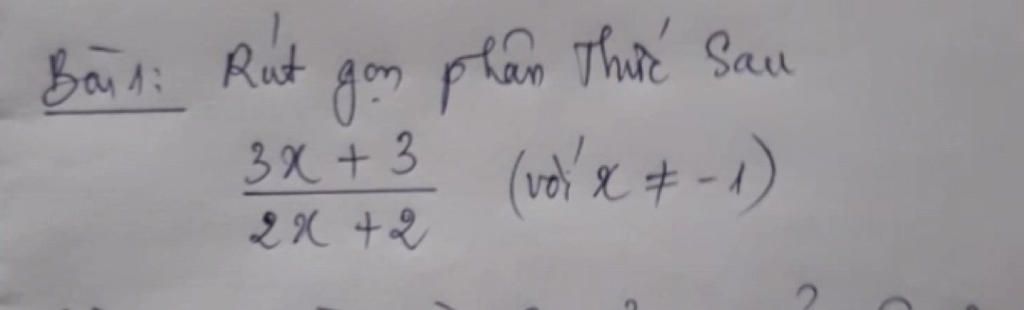 Bài 1: Rút gọn phân thức sau
3x + 3
2x + 2
(với x ≠ -1)